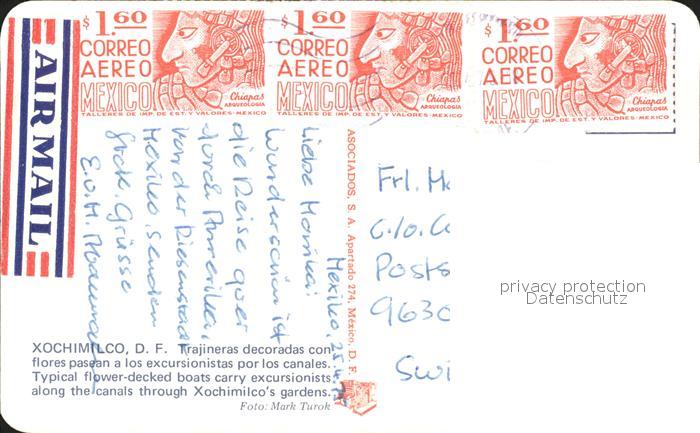 $1.60
CORREO
AEREO
MEXICO
Chiapas
ARQUEOLOGIA
TALLERES DE IMP. DE EST. Y VALORES-MEXICO
$1.60
CORREO
AEREO
MEXICO
Chiapas
ARQUEOLOGIA
TALLERES DE IMP. DE EST. Y VALORES-MEXICO
$1.60
CORREO
AEREO
MEXICO
Chiapas
ARQUEOLOGIA
TALLERES DE IMP. DE EST. Y VALORES-MEXICO
AIR MAIL
Mexiko, 25.4.
Liebe Monika!
Wunderschön ist
die Reise quer
durch Amerika.
Von der Riesenstadt
Mexiko senden
Grüsse
E. u. H.
ASOCIADOS, S. A. Apartado 274, México, D. F.
Frl.
c/o.
Posts
9630
Swi
privacy protection
Datenschutz
XOCHIMILCO, D. F. Trajineras decoradas con
flores pasean a los excursionistas por los canales.
Typical flower-decked boats carry excursionists
along the canals through Xochimilco's gardens.
Foto: Mark Turok